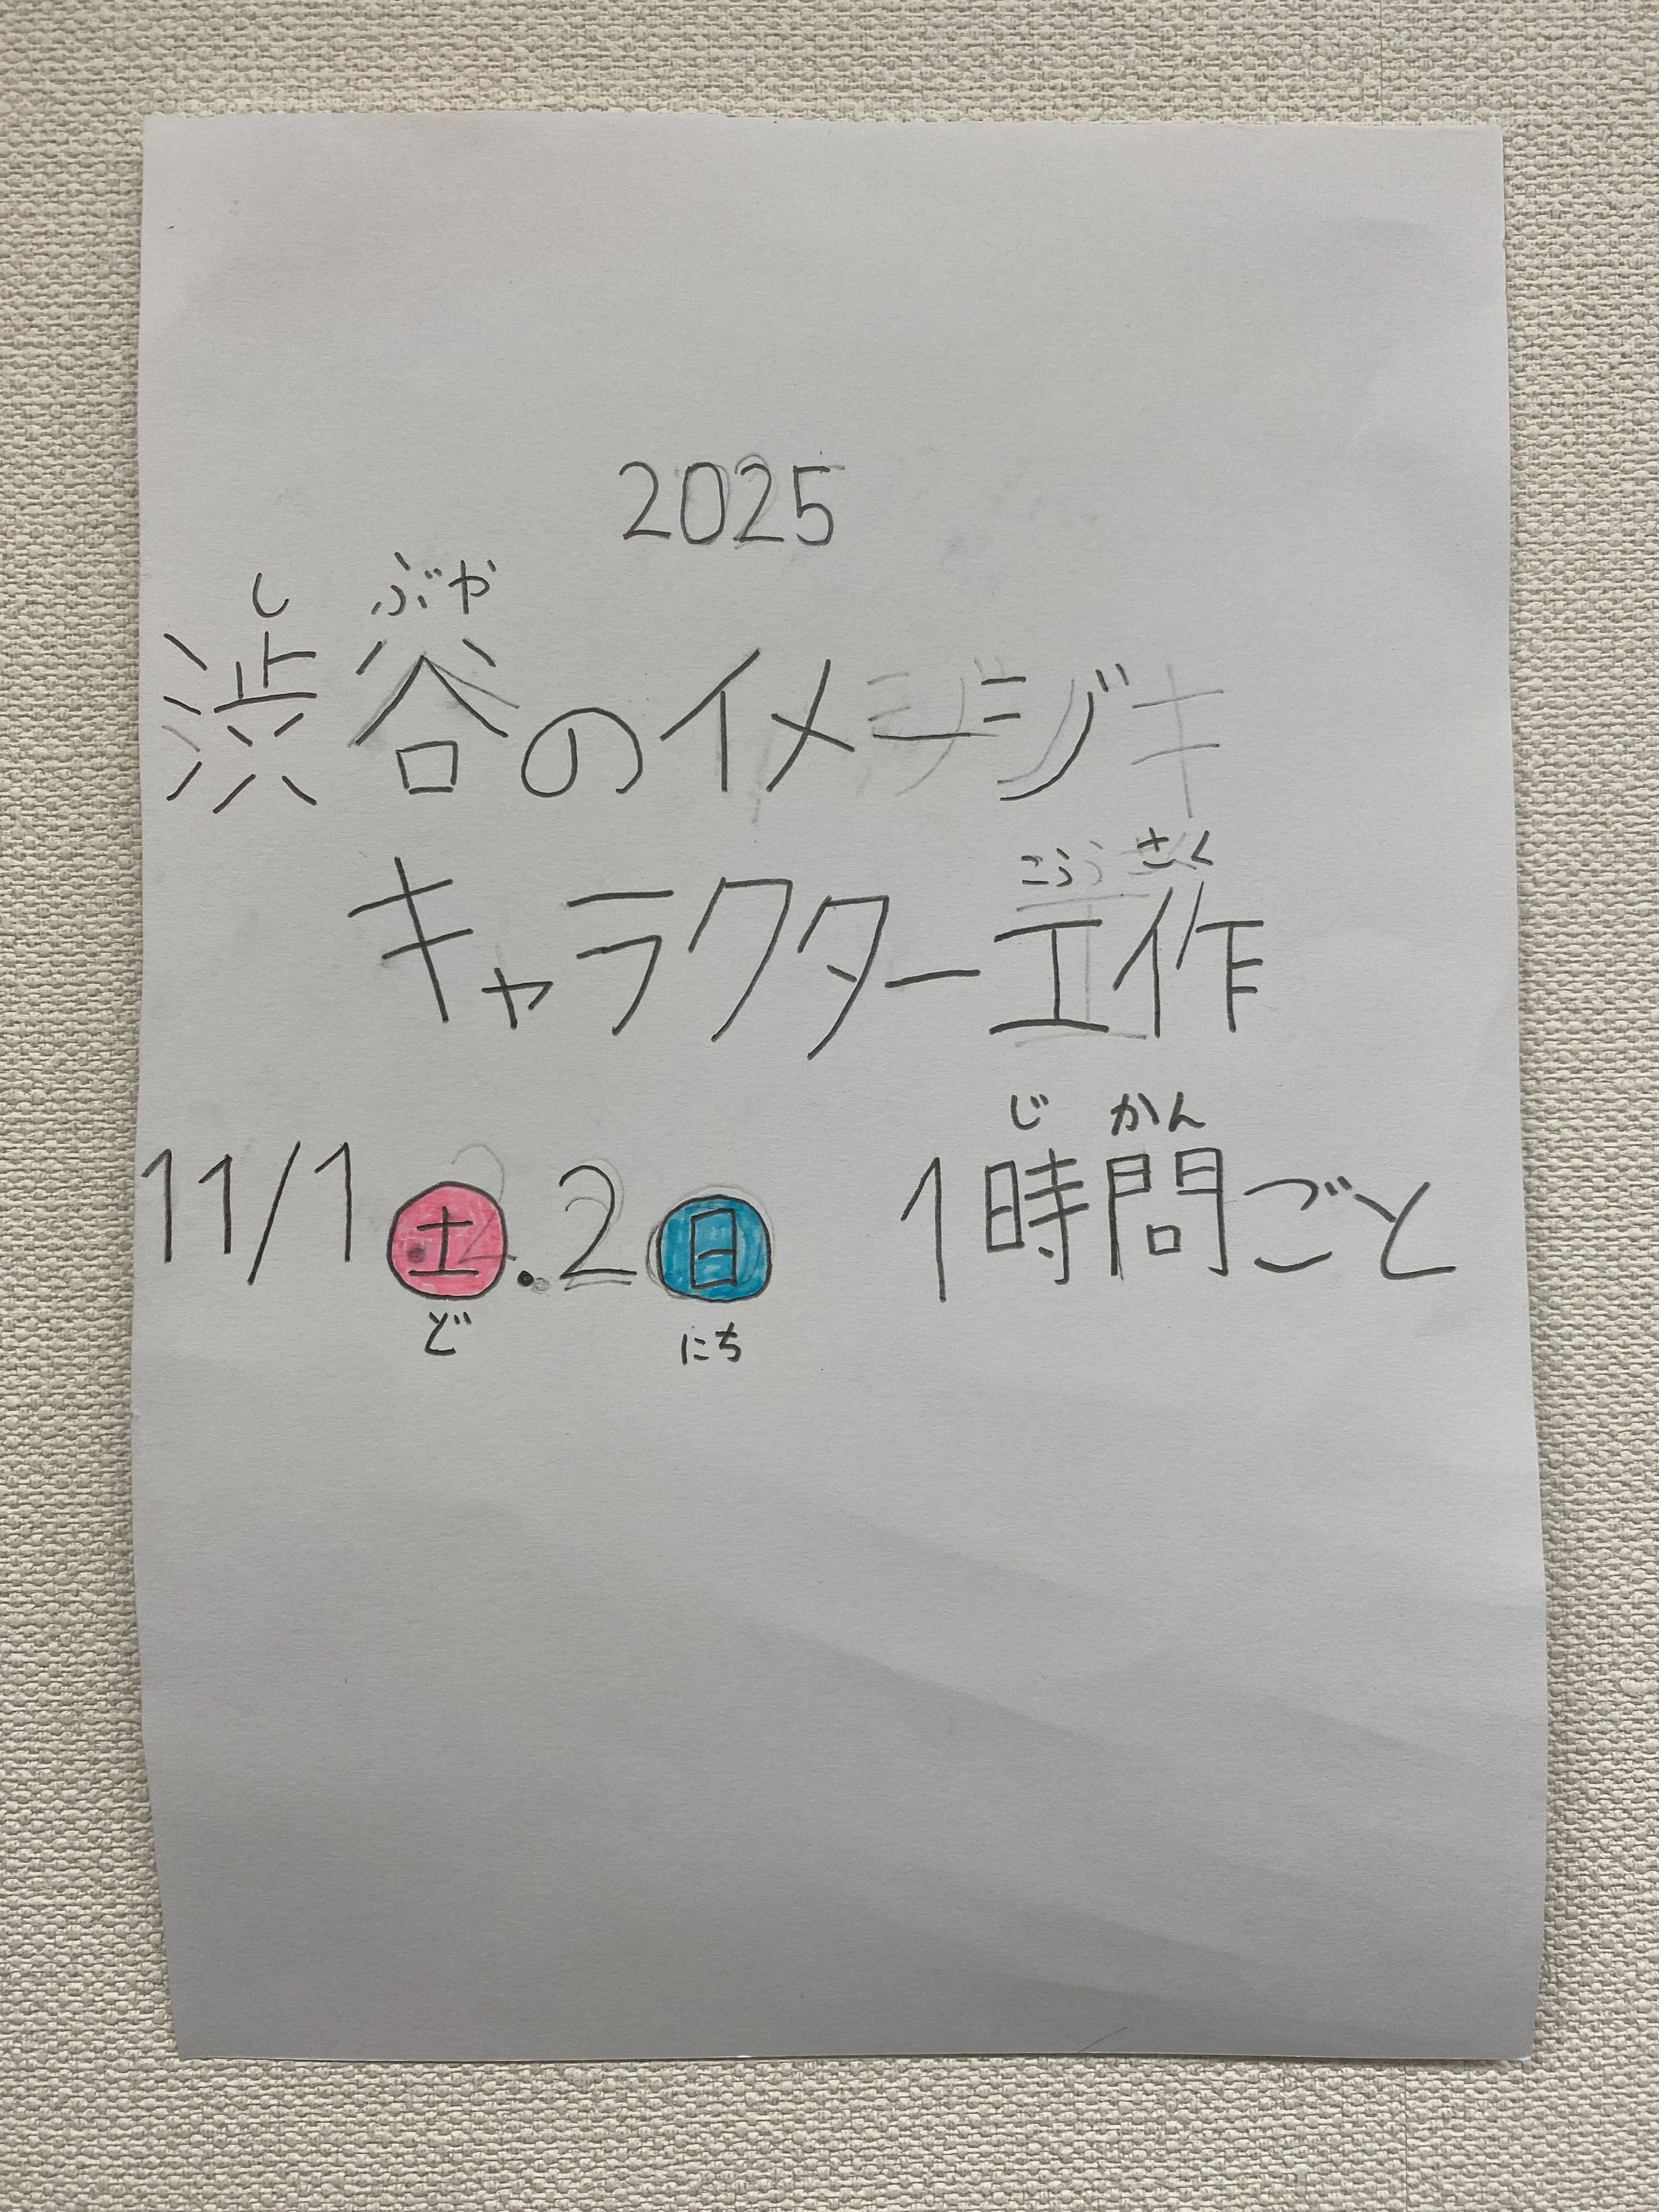 2025
しぶや
渋谷のイメージ
こうさく
キャラクター工作
じかん
11/1土.2日 1時間ごと
ど にち